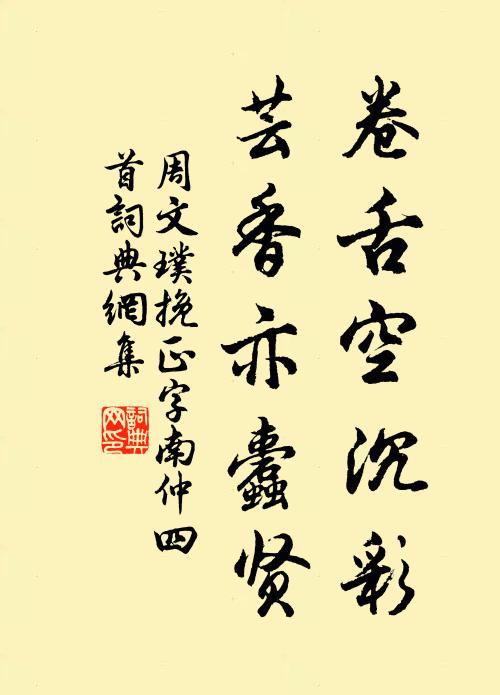 卷舌空沉彩
芸香亦蠹贤
周文璞挽正字南仲四
首詞典網集
詞典網印